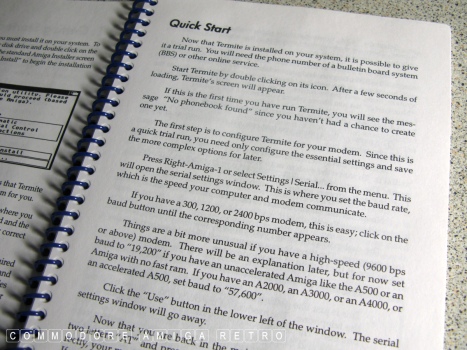 you must install it on your system. To
disk drive and double click on the
standard Amiga Installer screen
Install" to begin the installation
Quick Start
Now that Termite is installed on your system, it is possible to give
it a trial run. You will need the phone number of a bulletin board system
(BBS) or other online service.
Start Termite by double clicking on its icon. After a few seconds of
loading, Termite's screen will appear.
If this is the first time you have run Termite, you will see the mes-
sage "No phonebook found" since you haven't had a chance to create
one yet.
The first step is to configure Termite for your modem. Since this is
a quick trial run, you need only configure the essential settings and save
the more complex options for later.
Press Right-Amiga-1 or select Settings|Serial... from the menu. This
will open the serial settings window. This is where you set the baud rate,
which is the speed your computer and modem communicate.
If you have a 300, 1200, or 2400 bps modem, this is easy; click on the
baud button until the corresponding number appears.
Things are a bit more unusual if you have a high-speed (9600 bps
or above) modem. There will be an explanation later, but for now set
baud to "19,200" if you have an unaccelerated Amiga like the A500 or an
Amiga with no fast ram. If you have an A2000, an A3000, or an A4000, or
an accelerated A500, set baud to "57,600".
Click the "Use" button in the lower left of the window. The serial
settings window will go away.
Now that you are back in the
COMMODORE AMIGA RETRO